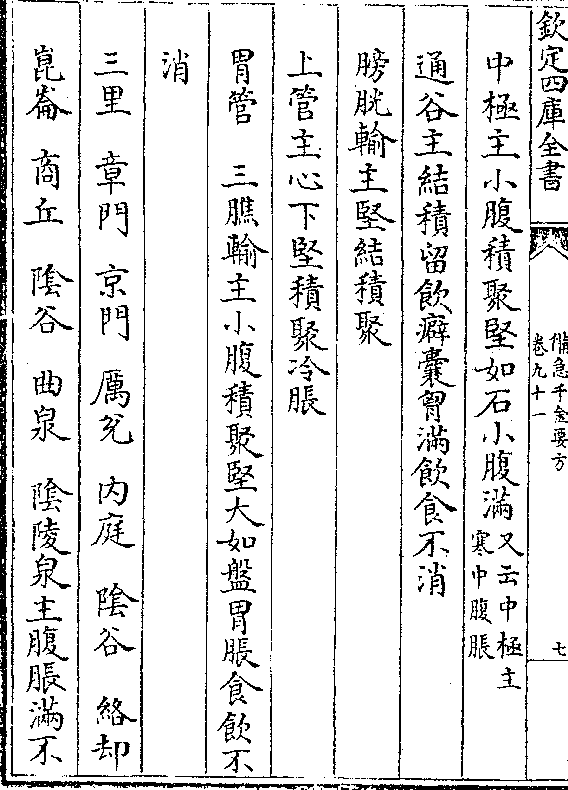 欽定四庫全書
備急千金要方
卷九十一
七
中極主小腹積聚堅如石小腹滿又云中極主
寒中腹脹
通谷主結積留飲癖囊胷滿飲食不消
膀胱輸主堅結積聚
上管主心下堅積聚冷脹
胃管　三膲輸主小腹積聚堅大如盤胃脹食飲不
消
三里　章門　京門　厲兊　内庭　陰谷　絡却
崑崙　商丘　陰谷　曲泉　陰陵泉主腹脹滿不